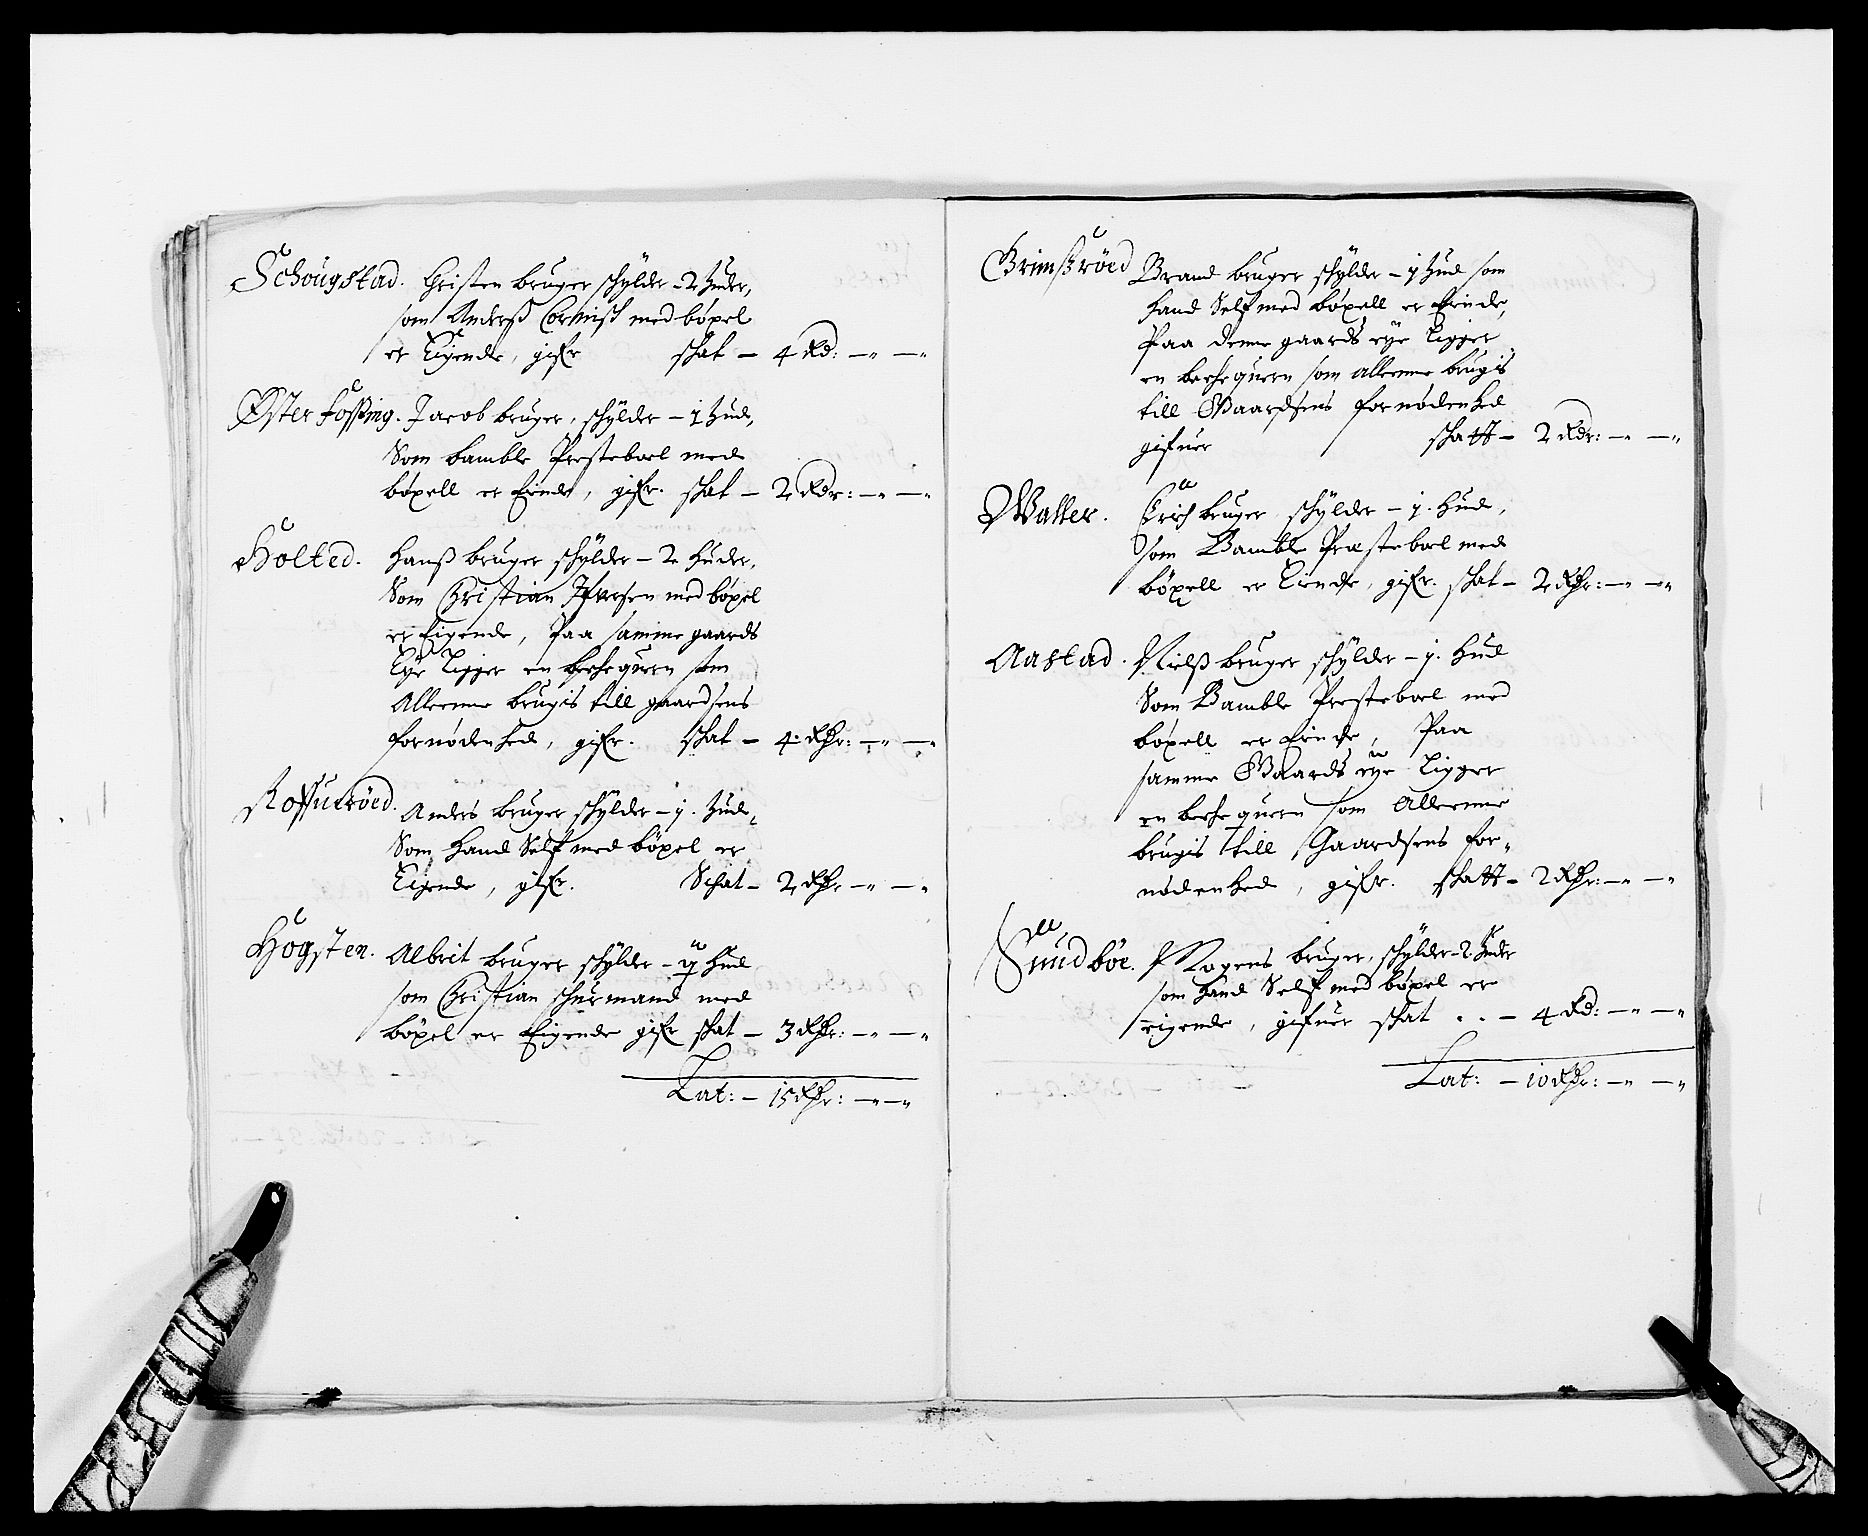 Schougstad. Christen bruger schylder – 2 huder,
som Anderß Cornisch med böxel
er Eigende, gifr skat – 4 Rd: – „ – „
Øster Fossing. Jacob bruger, schylder – 1 hud,
Som bamble Presteboel med
böxell er Eiende, gifr. skat – 2 Rdr: – „ – „
Holted. Hanß bruger schylder – 2 huder,
Som Christian Ifversen med böxel
er Eigende, Paa samme gaards
Eye Ligger en beche quern som
Alleene brugis till gaardsens
fornødenhed, gifr. skat – 4. Rdr: – „ – „
Anders bruger schylder – 1. hud,
Som hand Self med böxel er
Eigende, gifr. Schat – 2 Rdr – „ – „
Högsten. Albrit bruger schylder – 1½ hud
som Christian Schurmand med
böxel er Eigende gifr skat – 3 Rdr: – „ – „
Lat: – 15 Rdr: – „ – „
Grimßröed Brand bruger schylder – 1 hud som
hand Self med böxell er Eiende,
Paa denne gaards eye Ligger
en beche quern som alleene brugis
till Gaardsens fornødenhed
gifuer skatt – 2 Rdr: – „ – „
Walter. Erich bruger schylder – 1. hud,
som Bamble Præsteboel med
böxell er Eiende, gifr. skat – 2 Rdr: – „ – „
Aastad. Nielß bruger schylder – 1. hud
Som Bamble Presteboel med
böxell er Eiende, Paa
samme Gaards eye Ligger
en beche quern som Alleene
brugis till Gaardsens for„
nødenhed, gifr. skatt – 2 Rdr: – „ – „
Sundböe. Mogens bruger, schylder – 2 huder
som hand Self med böxel er
eigende, gifuer skat . . – 4 Rd: – „ – „
Lat: – 10 Rdr: – „ – „